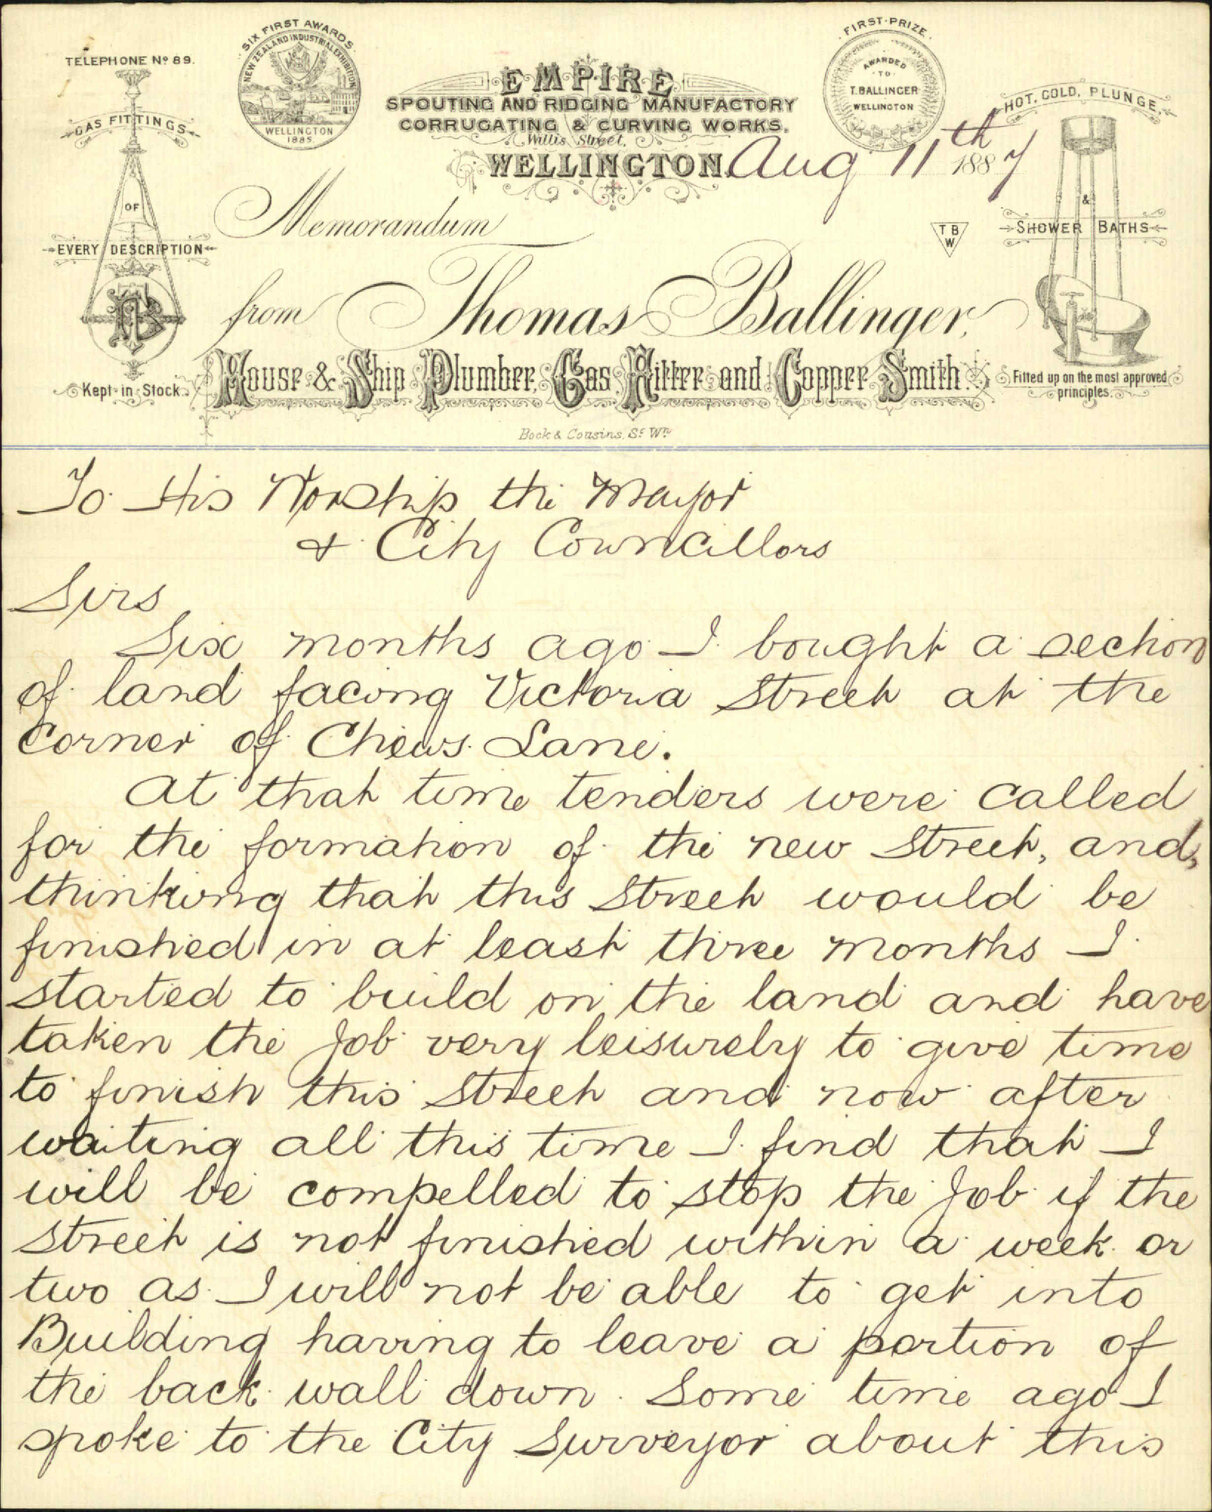 TELEPHONE Nº 89.
GAS FITTINGS
OF
EVERY DESCRIPTION
TB
Kept in Stock.
SIX FIRST AWARDS
NEW ZEALAND INDUSTRIAL EXHIBITION
WELLINGTON
1885
EMPIRE
SPOUTING AND RIDGING MANUFACTORY
CORRUGATING & CURVING WORKS.
Willis Street,
WELLINGTON. Aug 11th 1887
FIRST PRIZE
AWARDED
TO
T. BALLINGER
WELLINGTON
HOT, COLD, PLUNGE,
&
SHOWER BATHS
Fitted up on the most approved
principles.
Memorandum
T B
W
from Thomas Ballinger,
House & Ship Plumber, Gas Fitter and Copper Smith.
Bock & Cousins, Sc Wn
To His Worship the Mayor
& City Councillors
Sirs
Six months ago I bought a section
of land facing Victoria Street at the
corner of Chews Lane.
At that time tenders were called
for the formation of the new Street, and,
thinking that this Street would be
finished in at least three months I
started to build on the land and have
taken the Job very leisurely to give time
to finish this Street and now after
waiting all this time I find that I
will be compelled to stop the Job if the
Street is not finished within a week or
two as I will not be able to get into
Building having to leave a portion of
the back wall down. Some time ago I
spoke to the City Surveyor about this